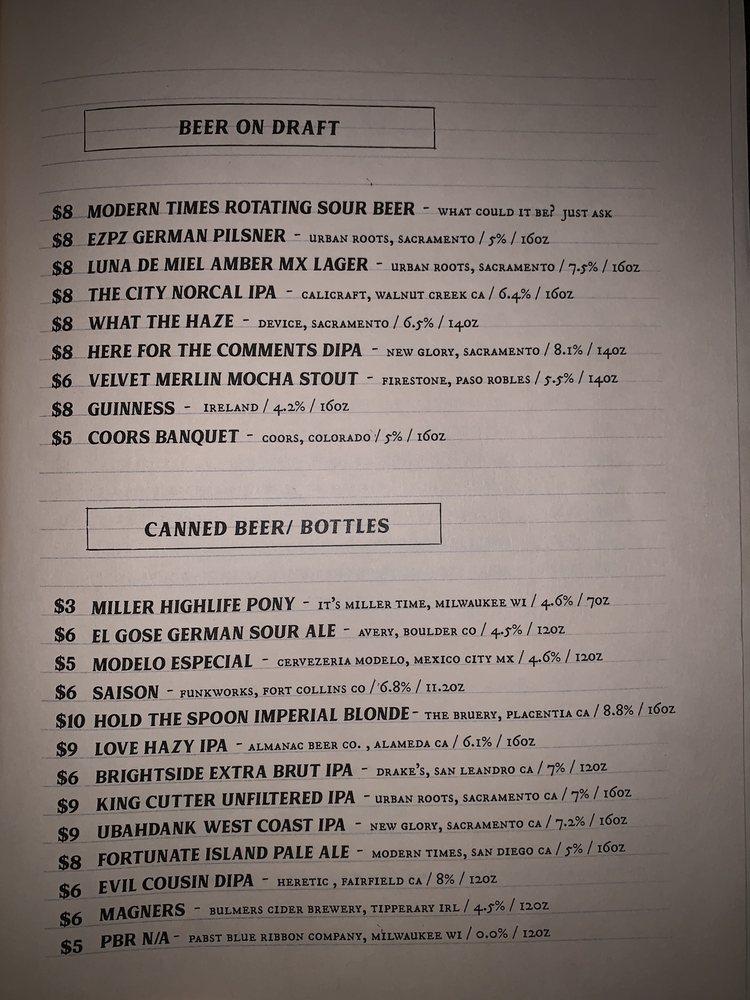 BEER ON DRAFT
$8 MODERN TIMES ROTATING SOUR BEER - WHAT COULD IT BE? JUST ASK
$8 EZPZ GERMAN PILSNER - URBAN ROOTS, SACRAMENTO / 5% / 16OZ
$8 LUNA DE MIEL AMBER MX LAGER - URBAN ROOTS, SACRAMENTO / 7.5% / 16OZ
$8 THE CITY NORCAL IPA - CALICRAFT, WALNUT CREEK CA / 6.4% / 16OZ
$8 WHAT THE HAZE - DEVICE, SACRAMENTO / 6.5% / 14OZ
$8 HERE FOR THE COMMENTS DIPA - NEW GLORY, SACRAMENTO / 8.1% / 14OZ
$6 VELVET MERLIN MOCHA STOUT - FIRESTONE, PASO ROBLES / 5.5% / 14OZ
$8 GUINNESS - IRELAND / 4.2% / 16OZ
$5 COORS BANQUET - COORS, COLORADO / 5% / 16OZ
CANNED BEER/ BOTTLES
$3 MILLER HIGHLIFE PONY - IT'S MILLER TIME, MILWAUKEE WI / 4.6% / 7OZ
$6 EL GOSE GERMAN SOUR ALE - AVERY, BOULDER CO / 4.5% / 12OZ
$5 MODELO ESPECIAL - CERVEZERIA MODELO, MEXICO CITY MX / 4.6% / 12OZ
$6 SAISON - FUNKWORKS, FORT COLLINS CO / 6.8% / 11.2OZ
$10 HOLD THE SPOON IMPERIAL BLONDE - THE BRUERY, PLACENTIA CA / 8.8% / 16OZ
$9 LOVE HAZY IPA - ALMANAC BEER CO. , ALAMEDA CA / 6.1% / 16OZ
$6 BRIGHTSIDE EXTRA BRUT IPA - DRAKE'S, SAN LEANDRO CA / 7% / 12OZ
$9 KING CUTTER UNFILTERED IPA - URBAN ROOTS, SACRAMENTO CA / 7% / 16OZ
$9 UBAHDANK WEST COAST IPA - NEW GLORY, SACRAMENTO CA / 7.2% / 16OZ
$8 FORTUNATE ISLAND PALE ALE - MODERN TIMES, SAN DIEGO CA / 5% / 16OZ
$6 EVIL COUSIN DIPA - HERETIC , FAIRFIELD CA / 8% / 12OZ
$6 MAGNERS - BULMERS CIDER BREWERY, TIPPERARY IRL / 4.5% / 12OZ
$5 PBR N/A - PABST BLUE RIBBON COMPANY, MILWAUKEE WI / 0.0% / 12OZ